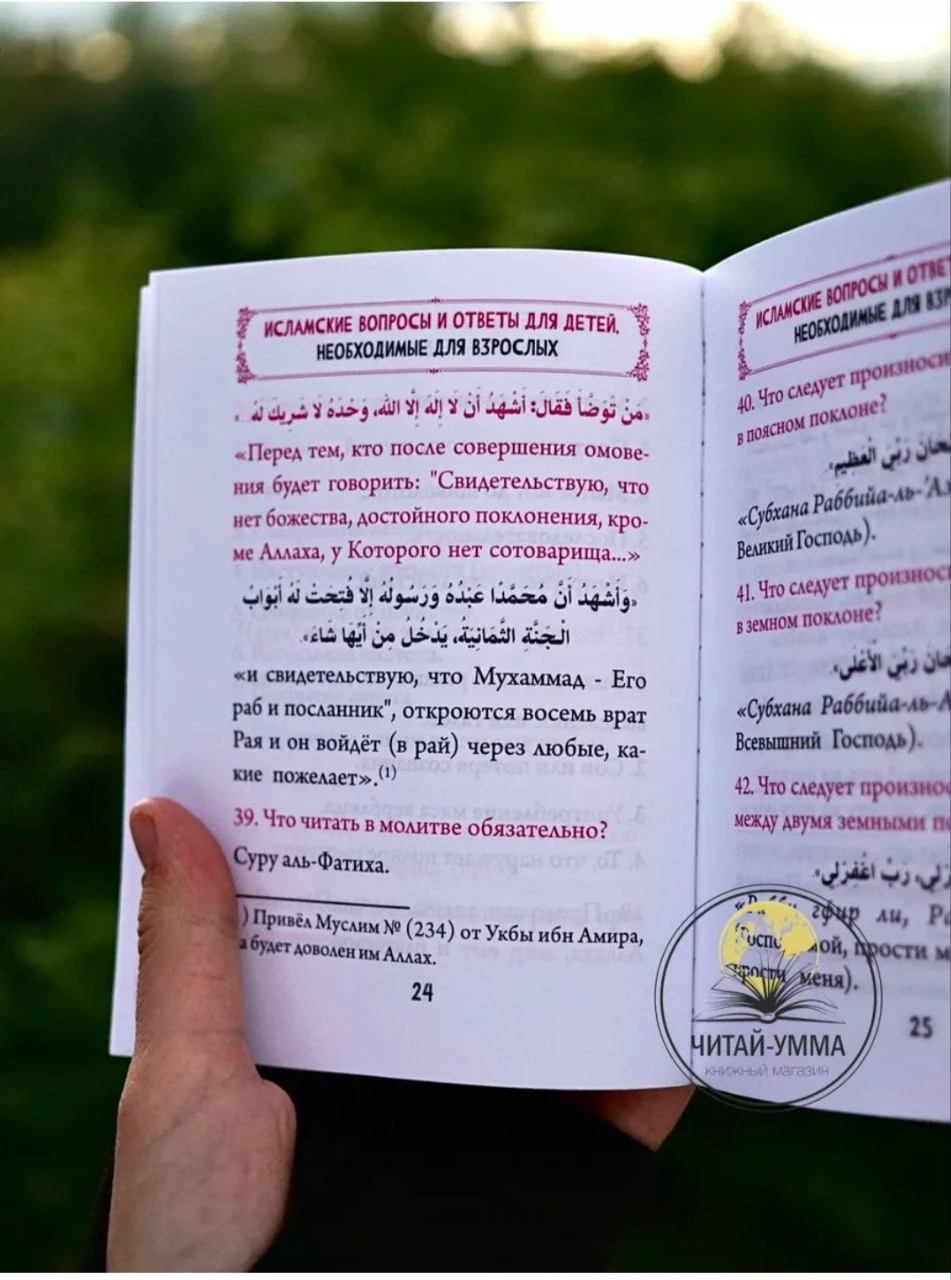 ИСЛАМСКИЕ ВОПРОСЫ И ОТВЕТЫ ДЛЯ ДЕТЕЙ,
НЕОБХОДИМЫЕ ДЛЯ ВЗРОСЛЫХ
«مَنْ تَوَضَّأَ فَقَالَ: أَشْهَدُ أَنْ لَا إِلَهَ إِلَّا اللهُ، وَحْدَهُ لَا شَرِيكَ لَهُ»
«Перед тем, кто после совершения омове-
ния будет говорить: "Свидетельствую, что
нет божества, достойного поклонения, кро-
ме Аллаха, у Которого нет сотоварища...»
«وَأَشْهَدُ أَنَّ مُحَمَّدًا عَبْدُهُ وَرَسُولُهُ إِلَّا فُتِحَتْ لَهُ أَبْوَابُ
الْجَنَّةِ الثَّمَانِيَةُ، يَدْخُلُ مِنْ أَيِّهَا شَاءَ».
«и свидетельствую, что Мухаммад - Его
раб и посланник", откроются восемь врат
Рая и он войдёт (в рай) через любые, ка-
кие пожелает».(1)
39. Что читать в молитве обязательно?
Суру аль-Фатиха.
) Привёл Муслим № (234) от Укбы ибн Амира,
а будет доволен им Аллах.
24
ИСЛАМСКИЕ ВОПРОСЫ И
НЕОБХОДИМЫЕ ДЛЯ
40. Что следует
в поясном поклоне?
رَبِّيَ الْعَظِيمِ».
«Субхана Раббийа-ль-
Великий Господь).
41. Что следует
в земном поклоне?
رَبِّيَ الْأَعْلَى».
«Субхана Раббийа-ль-
Всевышний Господь).
42. Что следует
между двумя земными
رَبِّ اغْفِرْ لِي».
ли,
прости
меня).
25
ЧИТАЙ-УММА
КНИЖНЫЙ МАГАЗИН